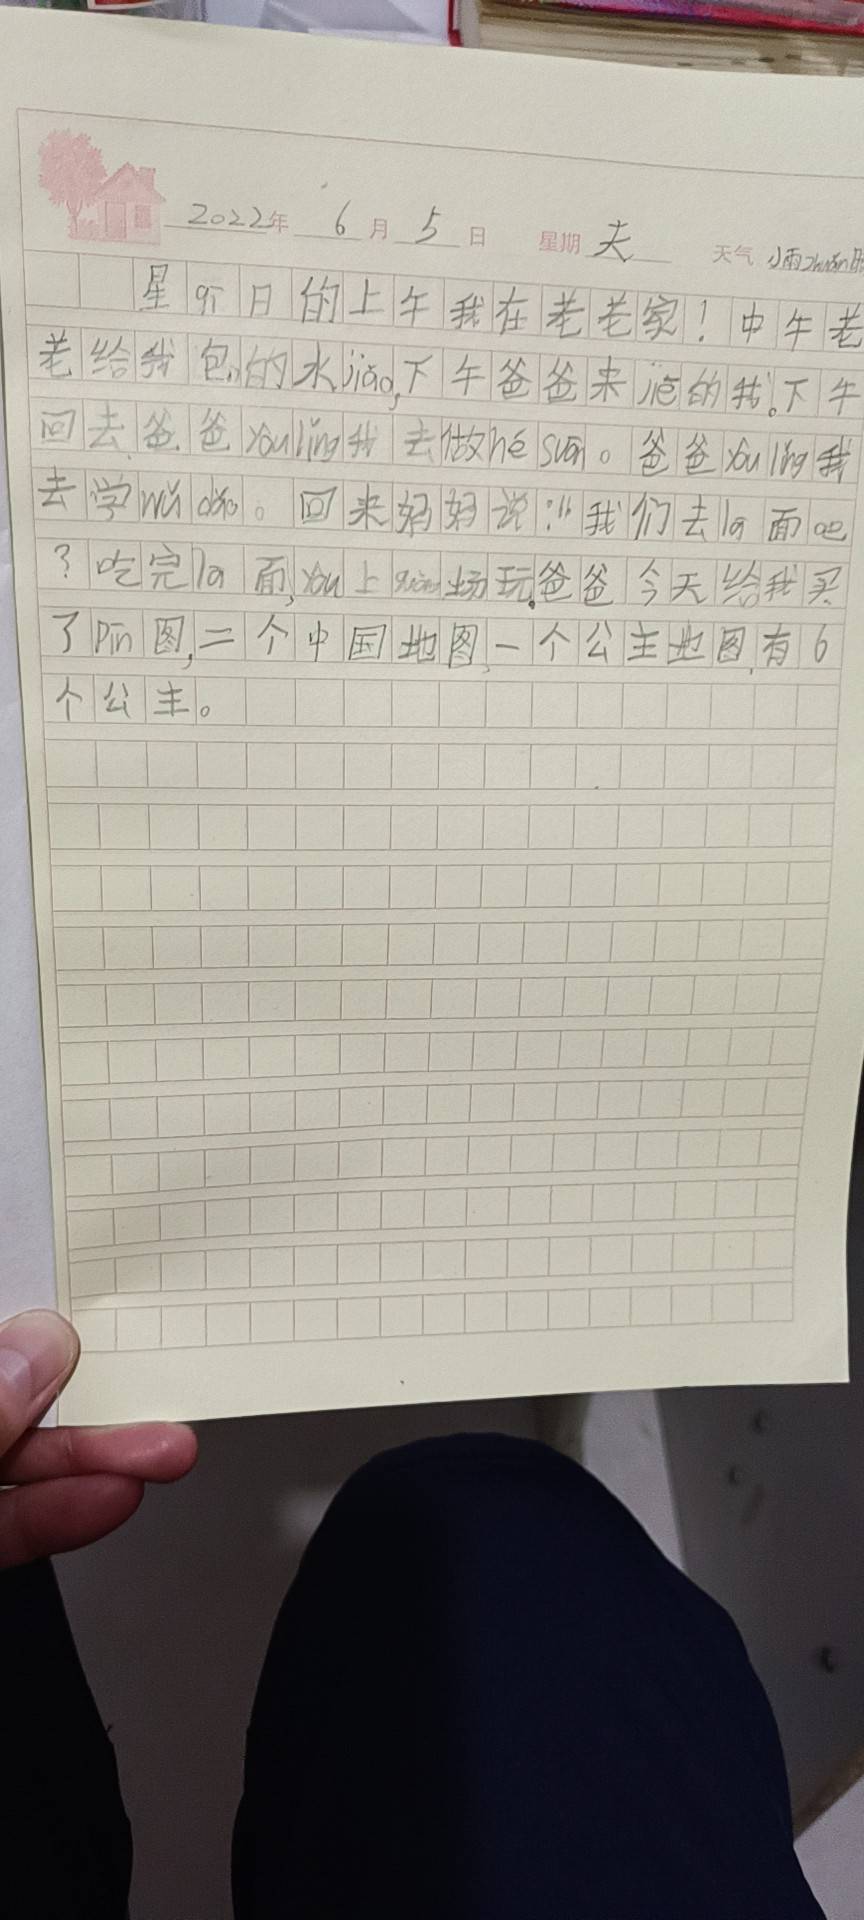 2022年 6月 5日 星期 天 天气 小雨zhuǎn晴
星qī日的上午我在老老家！中午老
老给我包的水jiǎo,下午爸爸来jiē的我。下午
回去,爸爸yòu lǐng我去做hé suān。爸爸yòu lǐng我
去学wǔ dǎo。回来妈妈说:“我们去la面吧
?吃完la面,yòu上guǎng场玩。爸爸今天给我买
了Pīn图,二个中国地图,一个公主地图,有6
个公主。